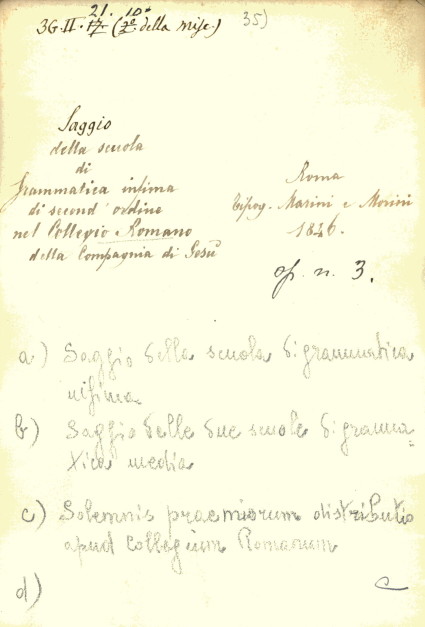 21. 10ª
3G.II.17 (2ª della misc.) 35)
Saggio
della scuola
di
Grammatica infima
di second' ordine
nel Collegio Romano
della Compagnia di Gesù
Roma
Tipog. Marini e Morini
1846.
op. n. 3.
a) Saggio della scuola di grammatica
infima
b) Saggio delle due scuole di gramma=
tica media
c) Solemnis praemiorum distributio
apud Collegium Romanum
d)